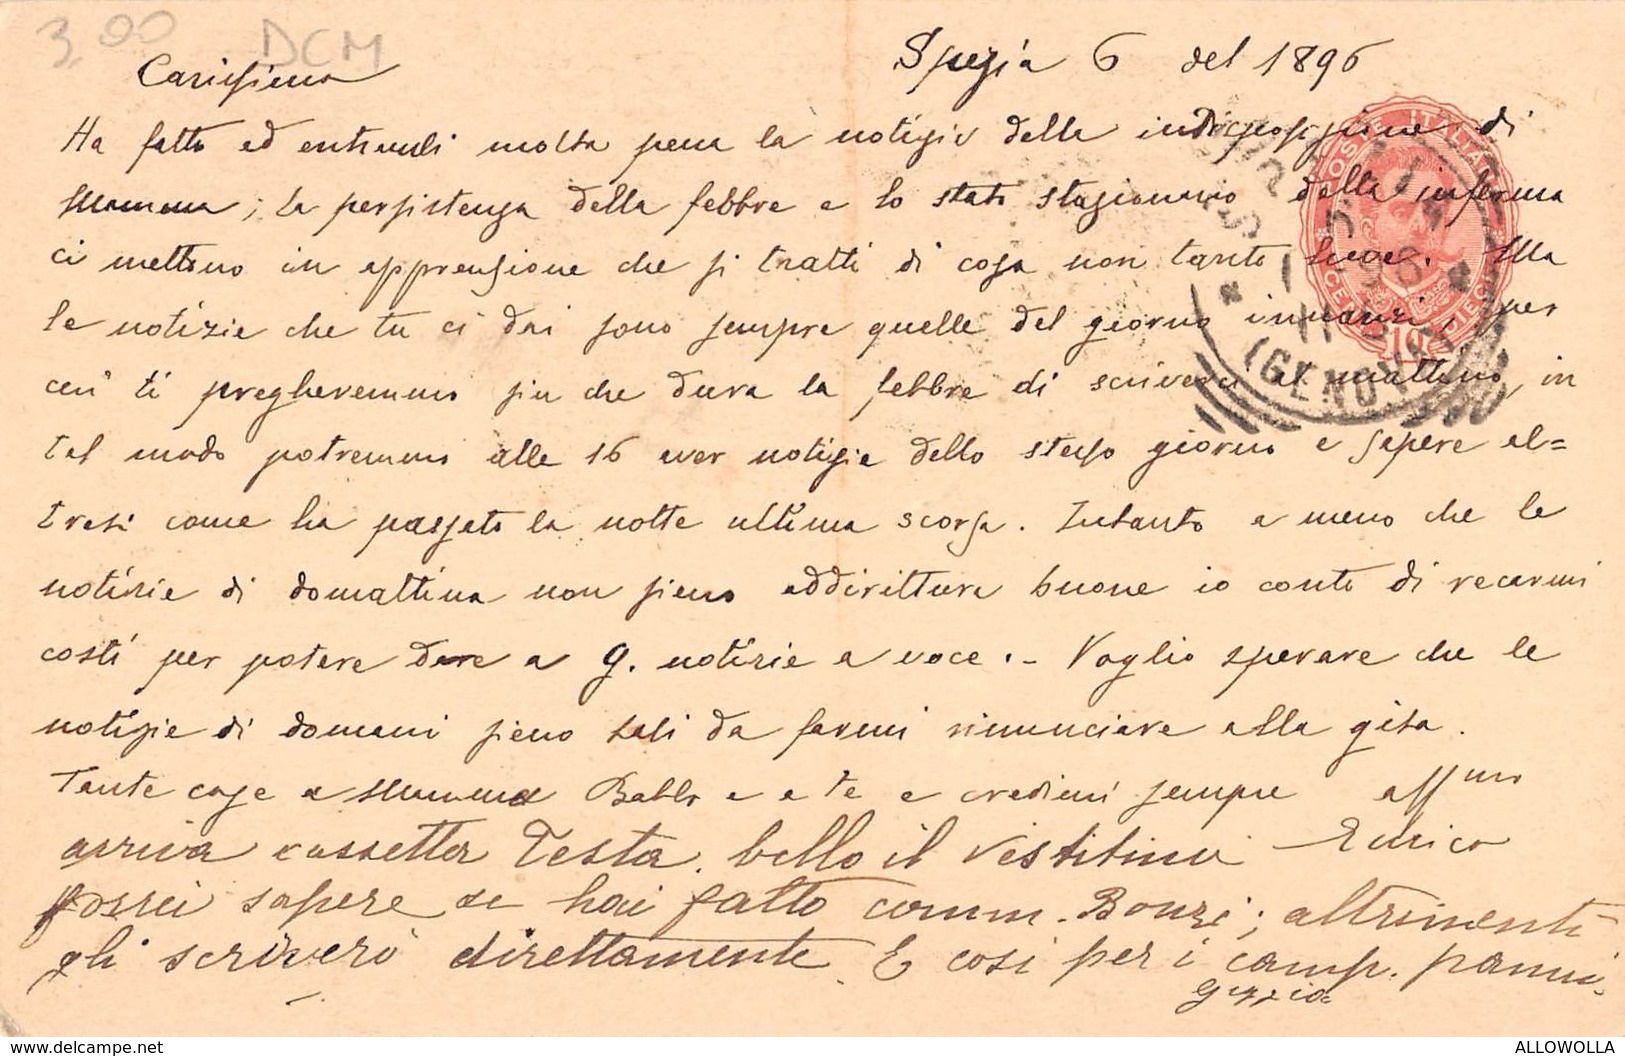 3,00 DCM
Spezia 6 del 1896
Carissima
Ha fatto ad entrambi molta pena la notizia della indisposizione di
Mamma; la persistenza della febbre e lo stato stazionario della inferma
ci mettono in apprensione che si tratti di cosa non tanto lieve. Ma
le notizie che tu ci dai sono sempre quelle del giorno innanzi, per
cui ti pregheremmo sin che dura la febbre di scrivere al mattino, in
tal modo potremmo alle 16 aver notizie dello stesso giorno e sapere al=
tresì come ha passato la notte ultima scorsa. Intanto a meno che le
notizie di domattina non sieno addirittura buone io conto di recarmi
costì per potere dare a G. notizie a voce. - Voglio sperare che le
notizie di domani sieno tali da farmi rinunciare alla gita.
Tante cose a Mamma Babbo e a te e credimi sempre affmo
Enrico
arriva cassetta Testa. bello il vestitino
vorrei sapere se hai fatto comm. Bonzi; altrimenti
gli scriverò direttamente. E così per i camp. panni
POSTE ITALIANE
CENT DIECI
10
96
(GENOVA)
ALLOWOLLA
https://www.delcampe.net